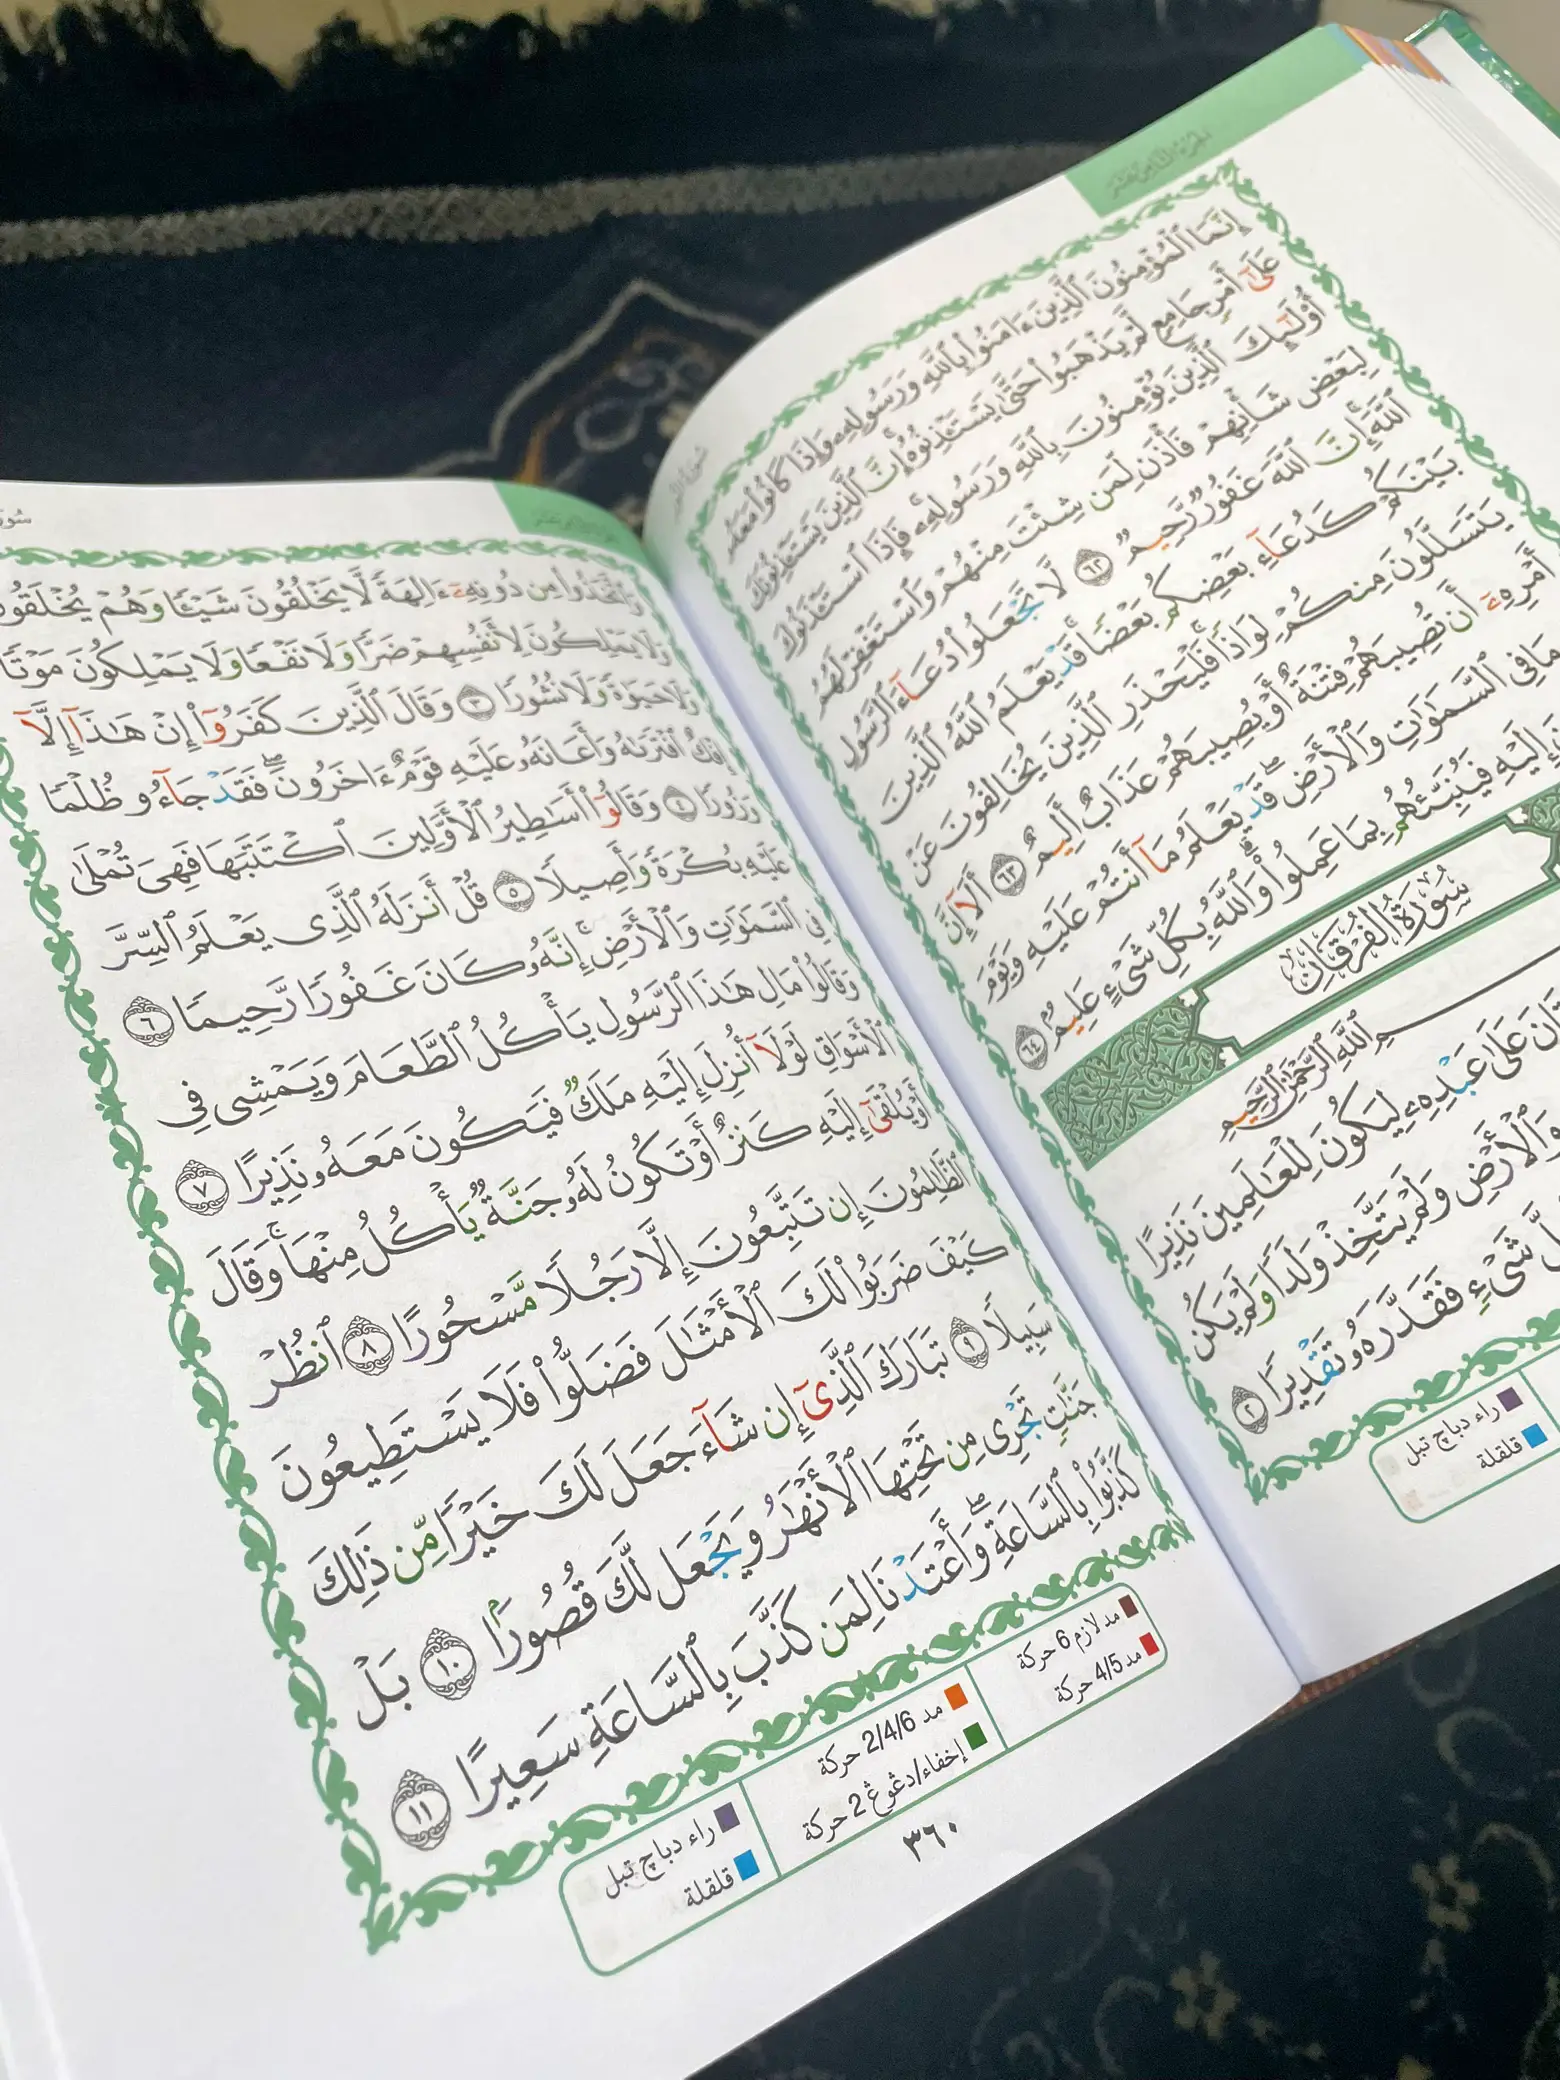 إِنَّمَا ٱلْمُؤْمِنُونَ ٱلَّذِينَ ءَامَنُوا۟ بِٱللَّهِ وَرَسُولِهِۦ وَإِذَا كَانُوا۟ مَعَهُۥ
عَلَىٰٓ أَمْرٍ جَامِعٍ لَّمْ يَذْهَبُوا۟ حَتَّىٰ يَسْتَـْٔذِنُوهُ ۚ إِنَّ ٱلَّذِينَ يَسْتَـْٔذِنُونَكَ
أُو۟لَـٰٓئِكَ ٱلَّذِينَ يُؤْمِنُونَ بِٱللَّهِ وَرَسُولِهِۦ ۚ فَإِذَا ٱسْتَـْٔذَنُوكَ
لِبَعْضِ شَأْنِهِمْ فَأْذَن لِّمَن شِئْتَ مِنْهُمْ وَٱسْتَغْفِرْ لَهُمُ
ٱللَّهَ ۚ إِنَّ ٱللَّهَ غَفُورٌ رَّحِيمٌ ٦٢ لَّا تَجْعَلُوا۟ دُعَآءَ ٱلرَّسُولِ
بَيْنَكُمْ كَدُعَآءِ بَعْضِكُم بَعْضًا ۚ قَدْ يَعْلَمُ ٱللَّهُ ٱلَّذِينَ
يَتَسَلَّلُونَ مِنكُمْ لِوَاذًا ۚ فَلْيَحْذَرِ ٱلَّذِينَ يُخَالِفُونَ عَنْ
أَمْرِهِۦٓ أَن تُصِيبَهُمْ فِتْنَةٌ أَوْ يُصِيبَهُمْ عَذَابٌ أَلِيمٌ ٦٣ أَلَآ إِنَّ
مَا فِى ٱلسَّمَـٰوَٰتِ وَٱلْأَرْضِ ۖ قَدْ يَعْلَمُ مَآ أَنتُمْ عَلَيْهِ وَيَوْمَ
إِلَيْهِ فَيُنَبِّئُهُم بِمَا عَمِلُوا۟ ۗ وَٱللَّهُ بِكُلِّ شَىْءٍ عَلِيمٌۢ ٦٤
سُورَةُ الفُرْقَانِ
بِسْمِ ٱللَّهِ ٱلرَّحْمَـٰنِ ٱلرَّحِيمِ
عَلَىٰ عَبْدِهِۦ لِيَكُونَ لِلْعَـٰلَمِينَ نَذِيرًا
وَٱلْأَرْضِ وَلَمْ يَتَّخِذْ وَلَدًا وَلَمْ يَكُن
شَىْءٍ فَقَدَّرَهُۥ تَقْدِيرًا ٢
راء دباچ تبل
قلقلة
وَٱتَّخَذُوا۟ مِن دُونِهِۦٓ ءَالِهَةً لَّا يَخْلُقُونَ شَيْـًٔا وَهُمْ يُخْلَقُونَ
وَلَا يَمْلِكُونَ لِأَنفُسِهِمْ ضَرًّا وَلَا نَفْعًا وَلَا يَمْلِكُونَ مَوْتًا
وَلَا حَيَوٰةً وَلَا نُشُورًا ٣ وَقَالَ ٱلَّذِينَ كَفَرُوٓا۟ إِنْ هَـٰذَآ إِلَّآ
إِفْكٌ ٱفْتَرَىٰهُ وَأَعَانَهُۥ عَلَيْهِ قَوْمٌ ءَاخَرُونَ ۖ فَقَدْ جَآءُو ظُلْمًا
وَزُورًا ٤ وَقَالُوٓا۟ أَسَـٰطِيرُ ٱلْأَوَّلِينَ ٱكْتَتَبَهَا فَهِىَ تُمْلَىٰ
عَلَيْهِ بُكْرَةً وَأَصِيلًا ٥ قُلْ أَنزَلَهُ ٱلَّذِى يَعْلَمُ ٱلسِّرَّ
فِى ٱلسَّمَـٰوَٰتِ وَٱلْأَرْضِ ۚ إِنَّهُۥ كَانَ غَفُورًا رَّحِيمًا ٦
وَقَالُوا۟ مَالِ هَـٰذَا ٱلرَّسُولِ يَأْكُلُ ٱلطَّعَامَ وَيَمْشِى فِى
ٱلْأَسْوَاقِ ۙ لَوْلَآ أُنزِلَ إِلَيْهِ مَلَكٌ فَيَكُونَ مَعَهُۥ نَذِيرًا ٧
أَوْ يُلْقَىٰٓ إِلَيْهِ كَنزٌ أَوْ تَكُونُ لَهُۥ جَنَّةٌ يَأْكُلُ مِنْهَا ۚ وَقَالَ
ٱلظَّـٰلِمُونَ إِن تَتَّبِعُونَ إِلَّا رَجُلًا مَّسْحُورًا ٨ ٱنظُرْ
كَيْفَ ضَرَبُوا۟ لَكَ ٱلْأَمْثَـٰلَ فَضَلُّوا۟ فَلَا يَسْتَطِيعُونَ
سَبِيلًا ٩ تَبَارَكَ ٱلَّذِىٓ إِن شَآءَ جَعَلَ لَكَ خَيْرًا مِّن ذَٰلِكَ
جَنَّـٰتٍ تَجْرِى مِن تَحْتِهَا ٱلْأَنْهَـٰرُ وَيَجْعَل لَّكَ قُصُورًۢا ١٠ بَلْ
كَذَّبُوا۟ بِٱلسَّاعَةِ ۖ وَأَعْتَدْنَا لِمَن كَذَّبَ بِٱلسَّاعَةِ سَعِيرًا ١١
مد لازم 6 حركة
مد 4/5 حركة
مد 2/4/6 حركة
إخفاء/دغوڠ 2 حركة
راء دباچ تبل
قلقلة
٣٦٠